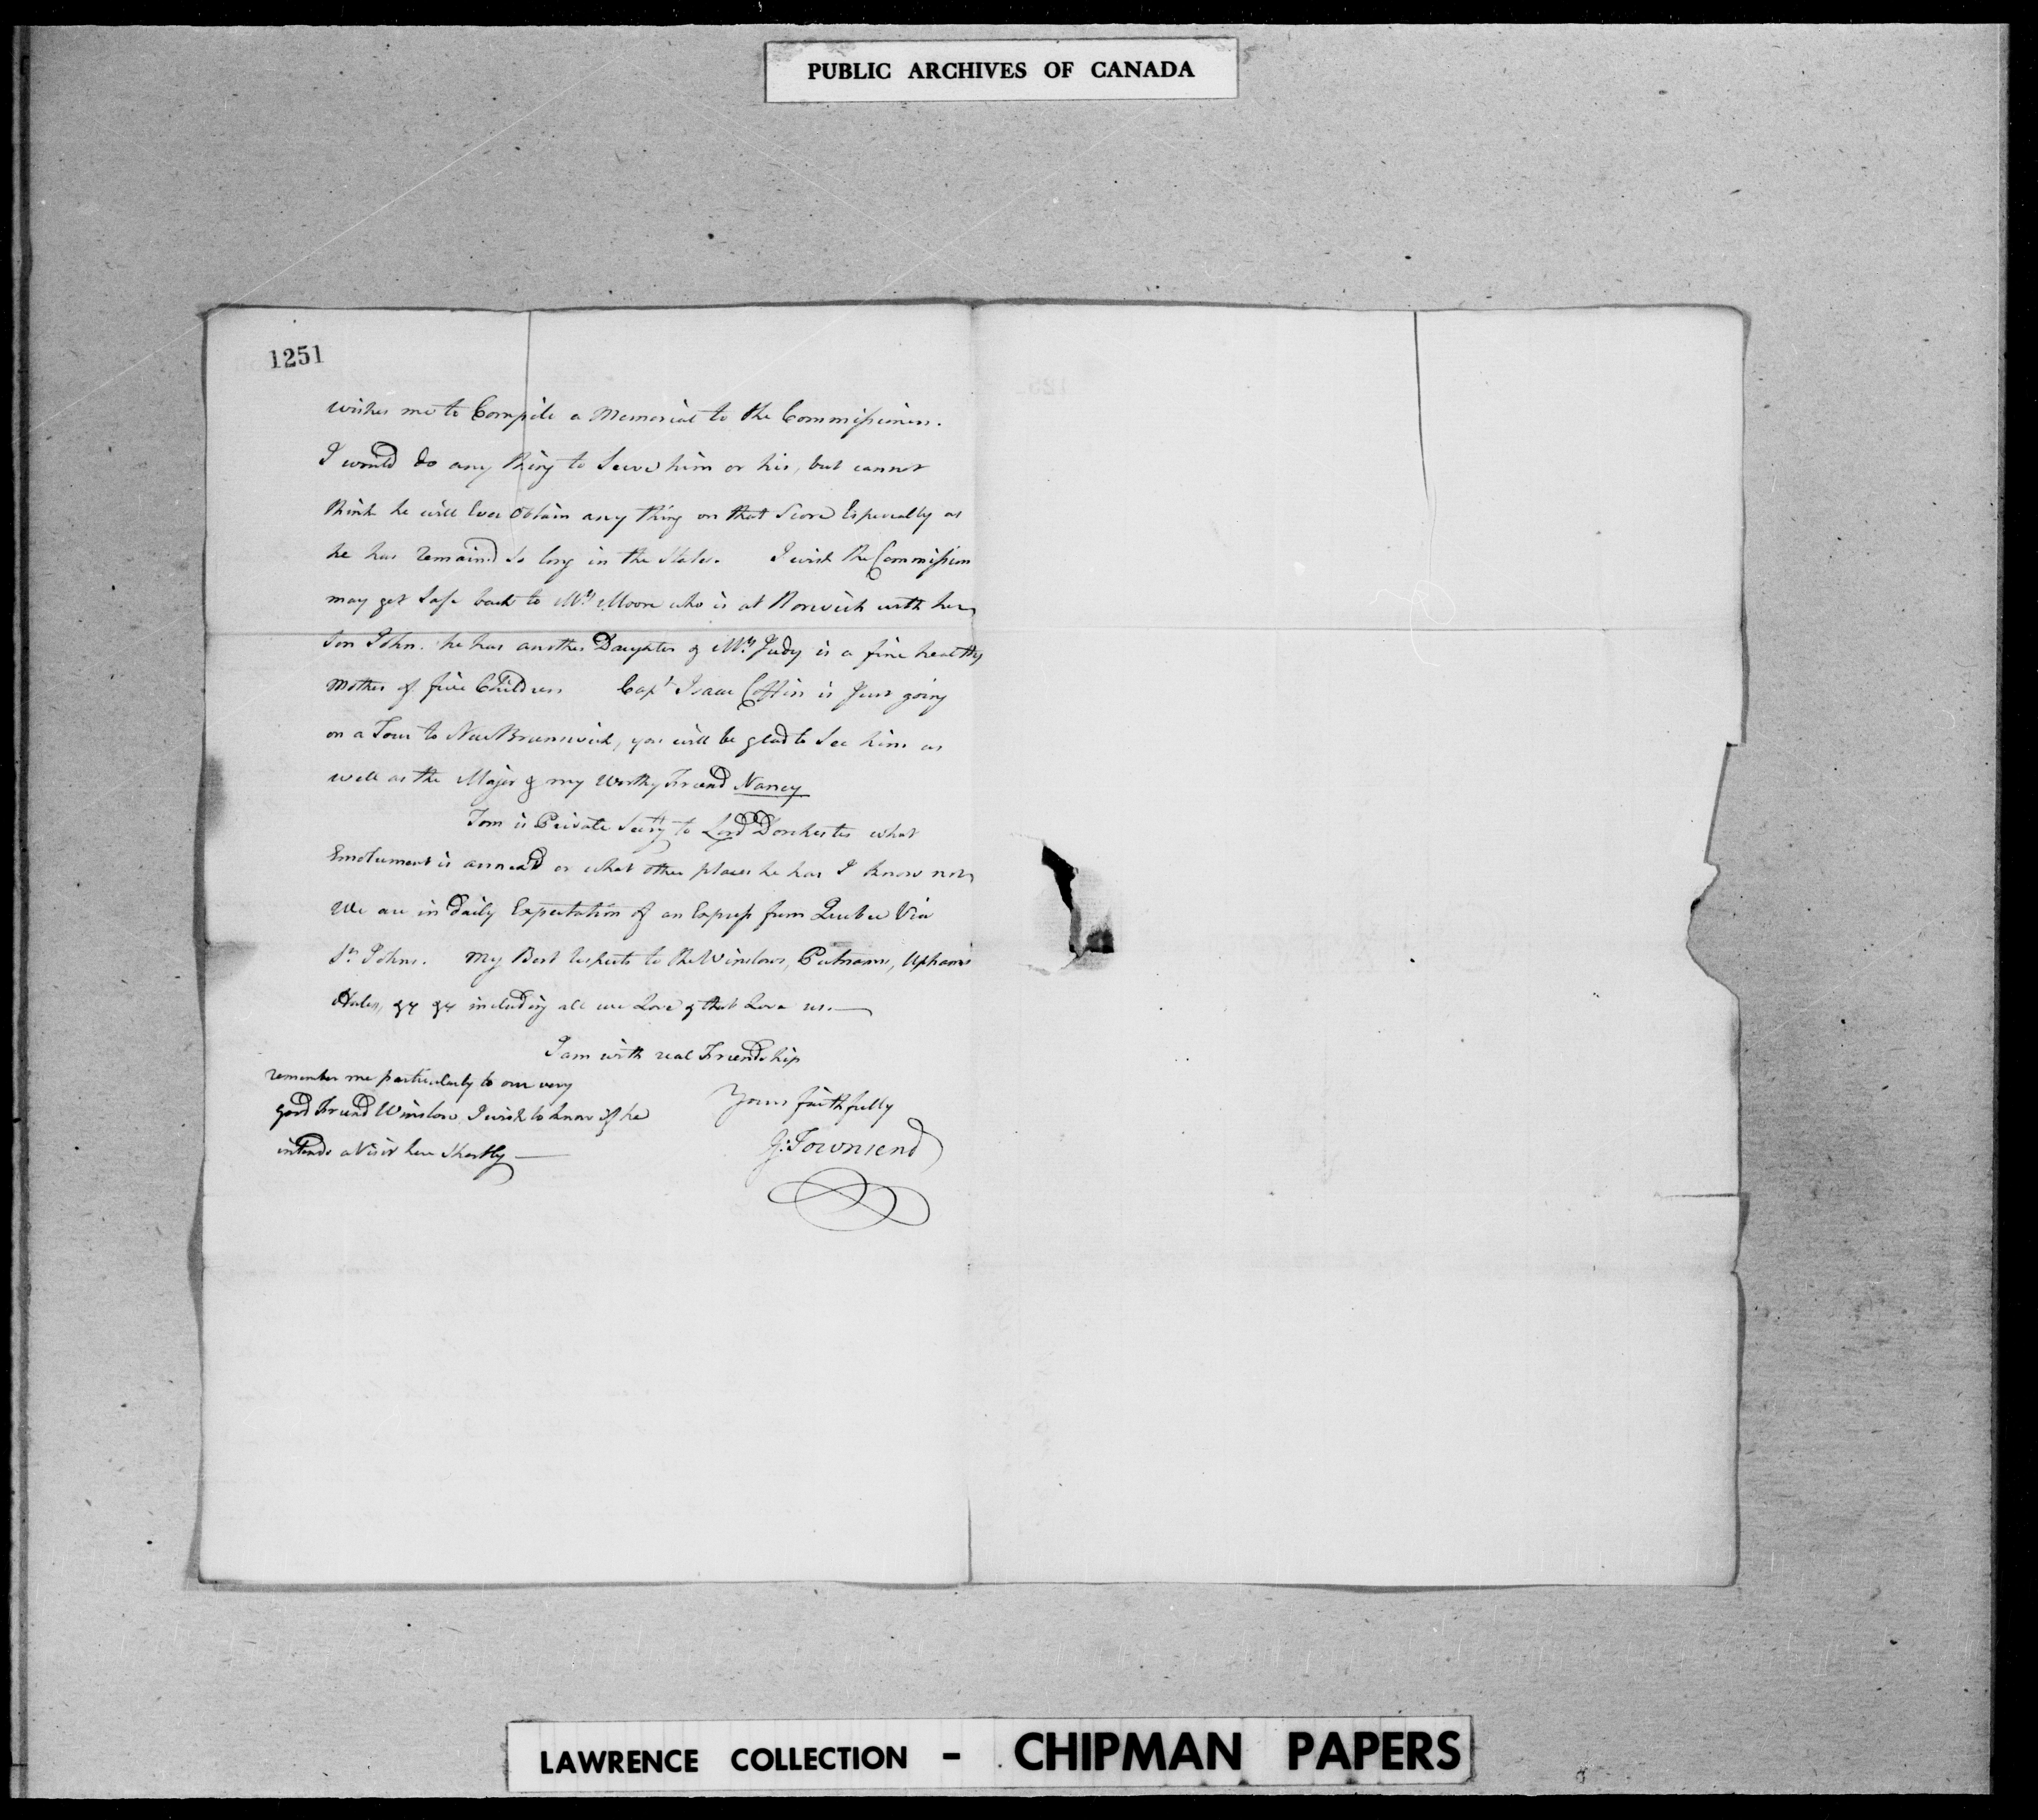 PUBLIC ARCHIVES OF CANADA
1251
wishes me to Compile a Memorial to the Commissioners.
I would do any thing to Serve him or his, but cannot
think he will Ever Obtain any thing on that Score Especially as
he has remaind So long in the States. I wish the Commission
may get Safe back to Mrs Moore who is at Norwich with her
Son John. he has another Daughter & Mrs Judy is a fine healthy
Mother of five Children Capt Isaac Coffin is Just going
on a Tour to New Brunswick, you will be glad to See him as
well as the Major & my Worthy Friend Nancy
Tom is Private Secty to Lord Dorchester what
Emolument is annex'd or what other places he has I know not
We are in daily Expectation of an Express from Quebec Via
St. Johns. My Best respects to the Winslows, Putnams, Uphams
Hales, &c &c including all we Love & that Love us.—
I am with real Friendship
Yours faithfully
G: Townsend
remember me particularly to our very
good Friend Winslow I wish to know if he
intends a Visit here Shortly —
LAWRENCE COLLECTION - CHIPMAN PAPERS